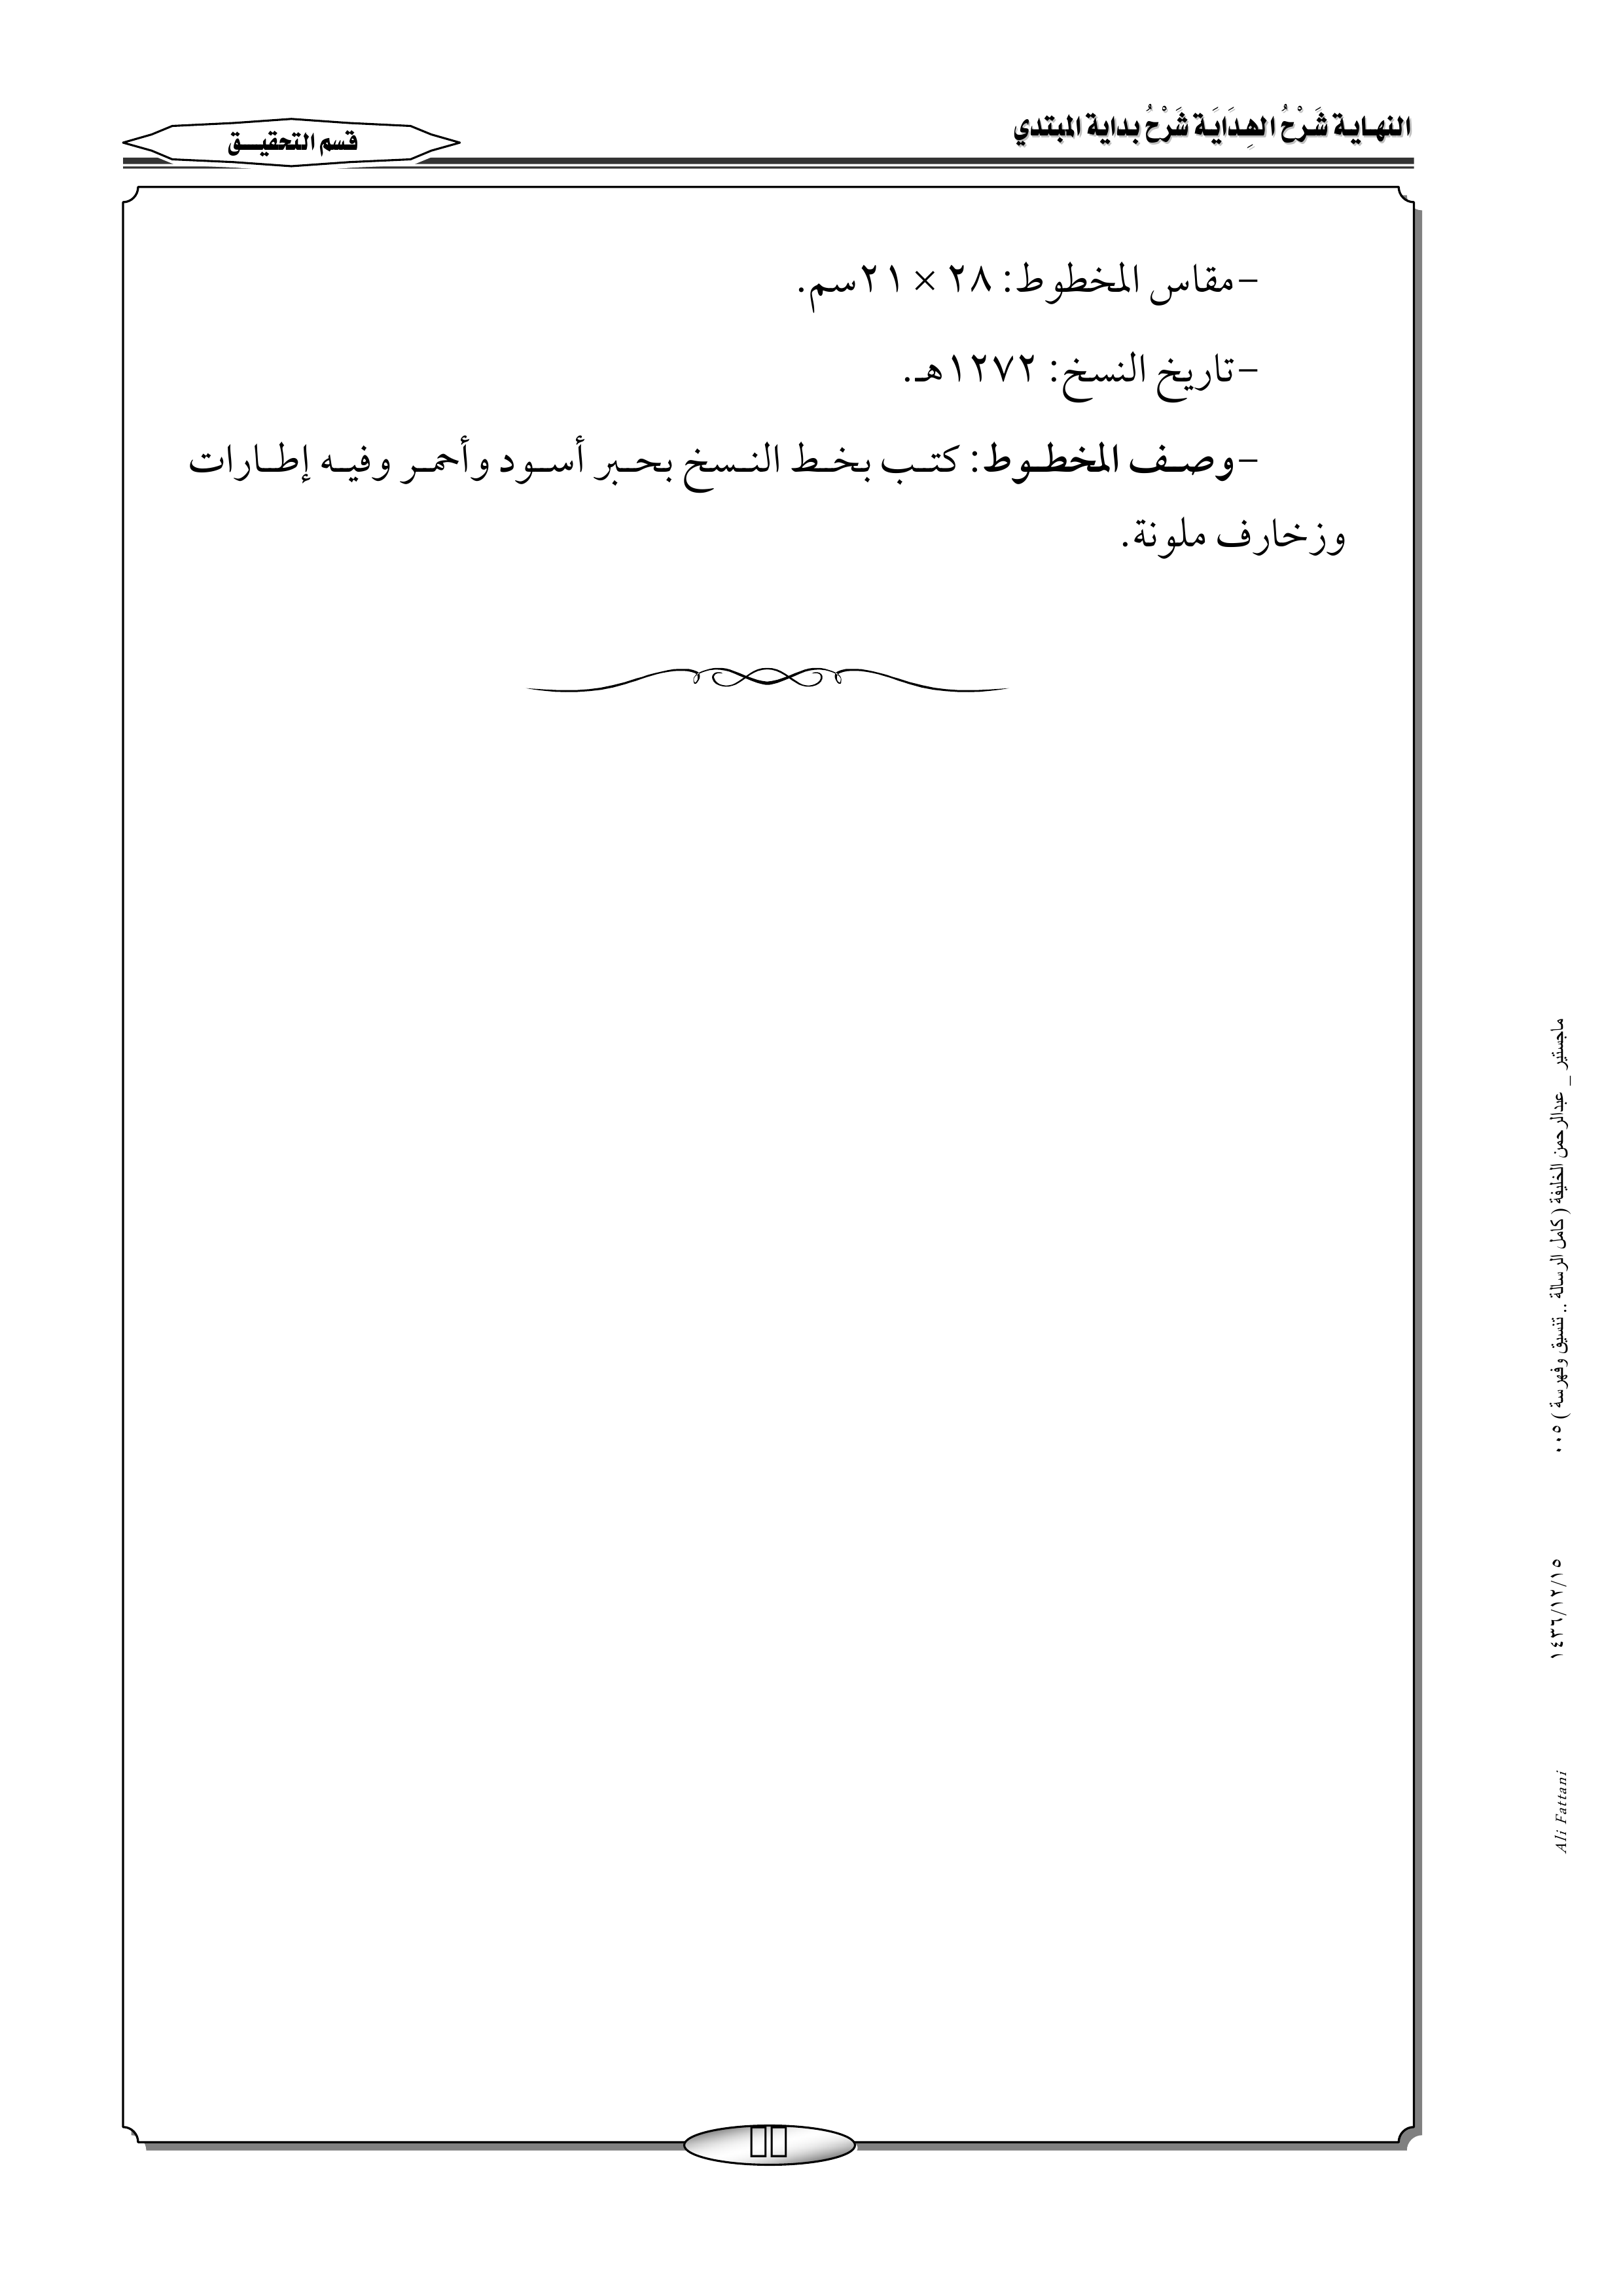 النهاية شَرْحُ الهِدَايَة شَرْحُ بداية المبتدي
قسم التحقيق
-مقاس المخطوط: ٢٨ × ٢١سم.
-تاريخ النسخ: ١٢٧٢هـ.
-وصف المخطوط: كتب بخط النسخ بحبر أسود وأحمر وفيه إطارات
وزخارف ملونة.
ماجستير _ عبدالرحمن الخليفة ( كامل الرسالة .. تنسيق وفهرسة ) ٠٠٥
١٤٣٦/١٢/١٥
Ali Fattani